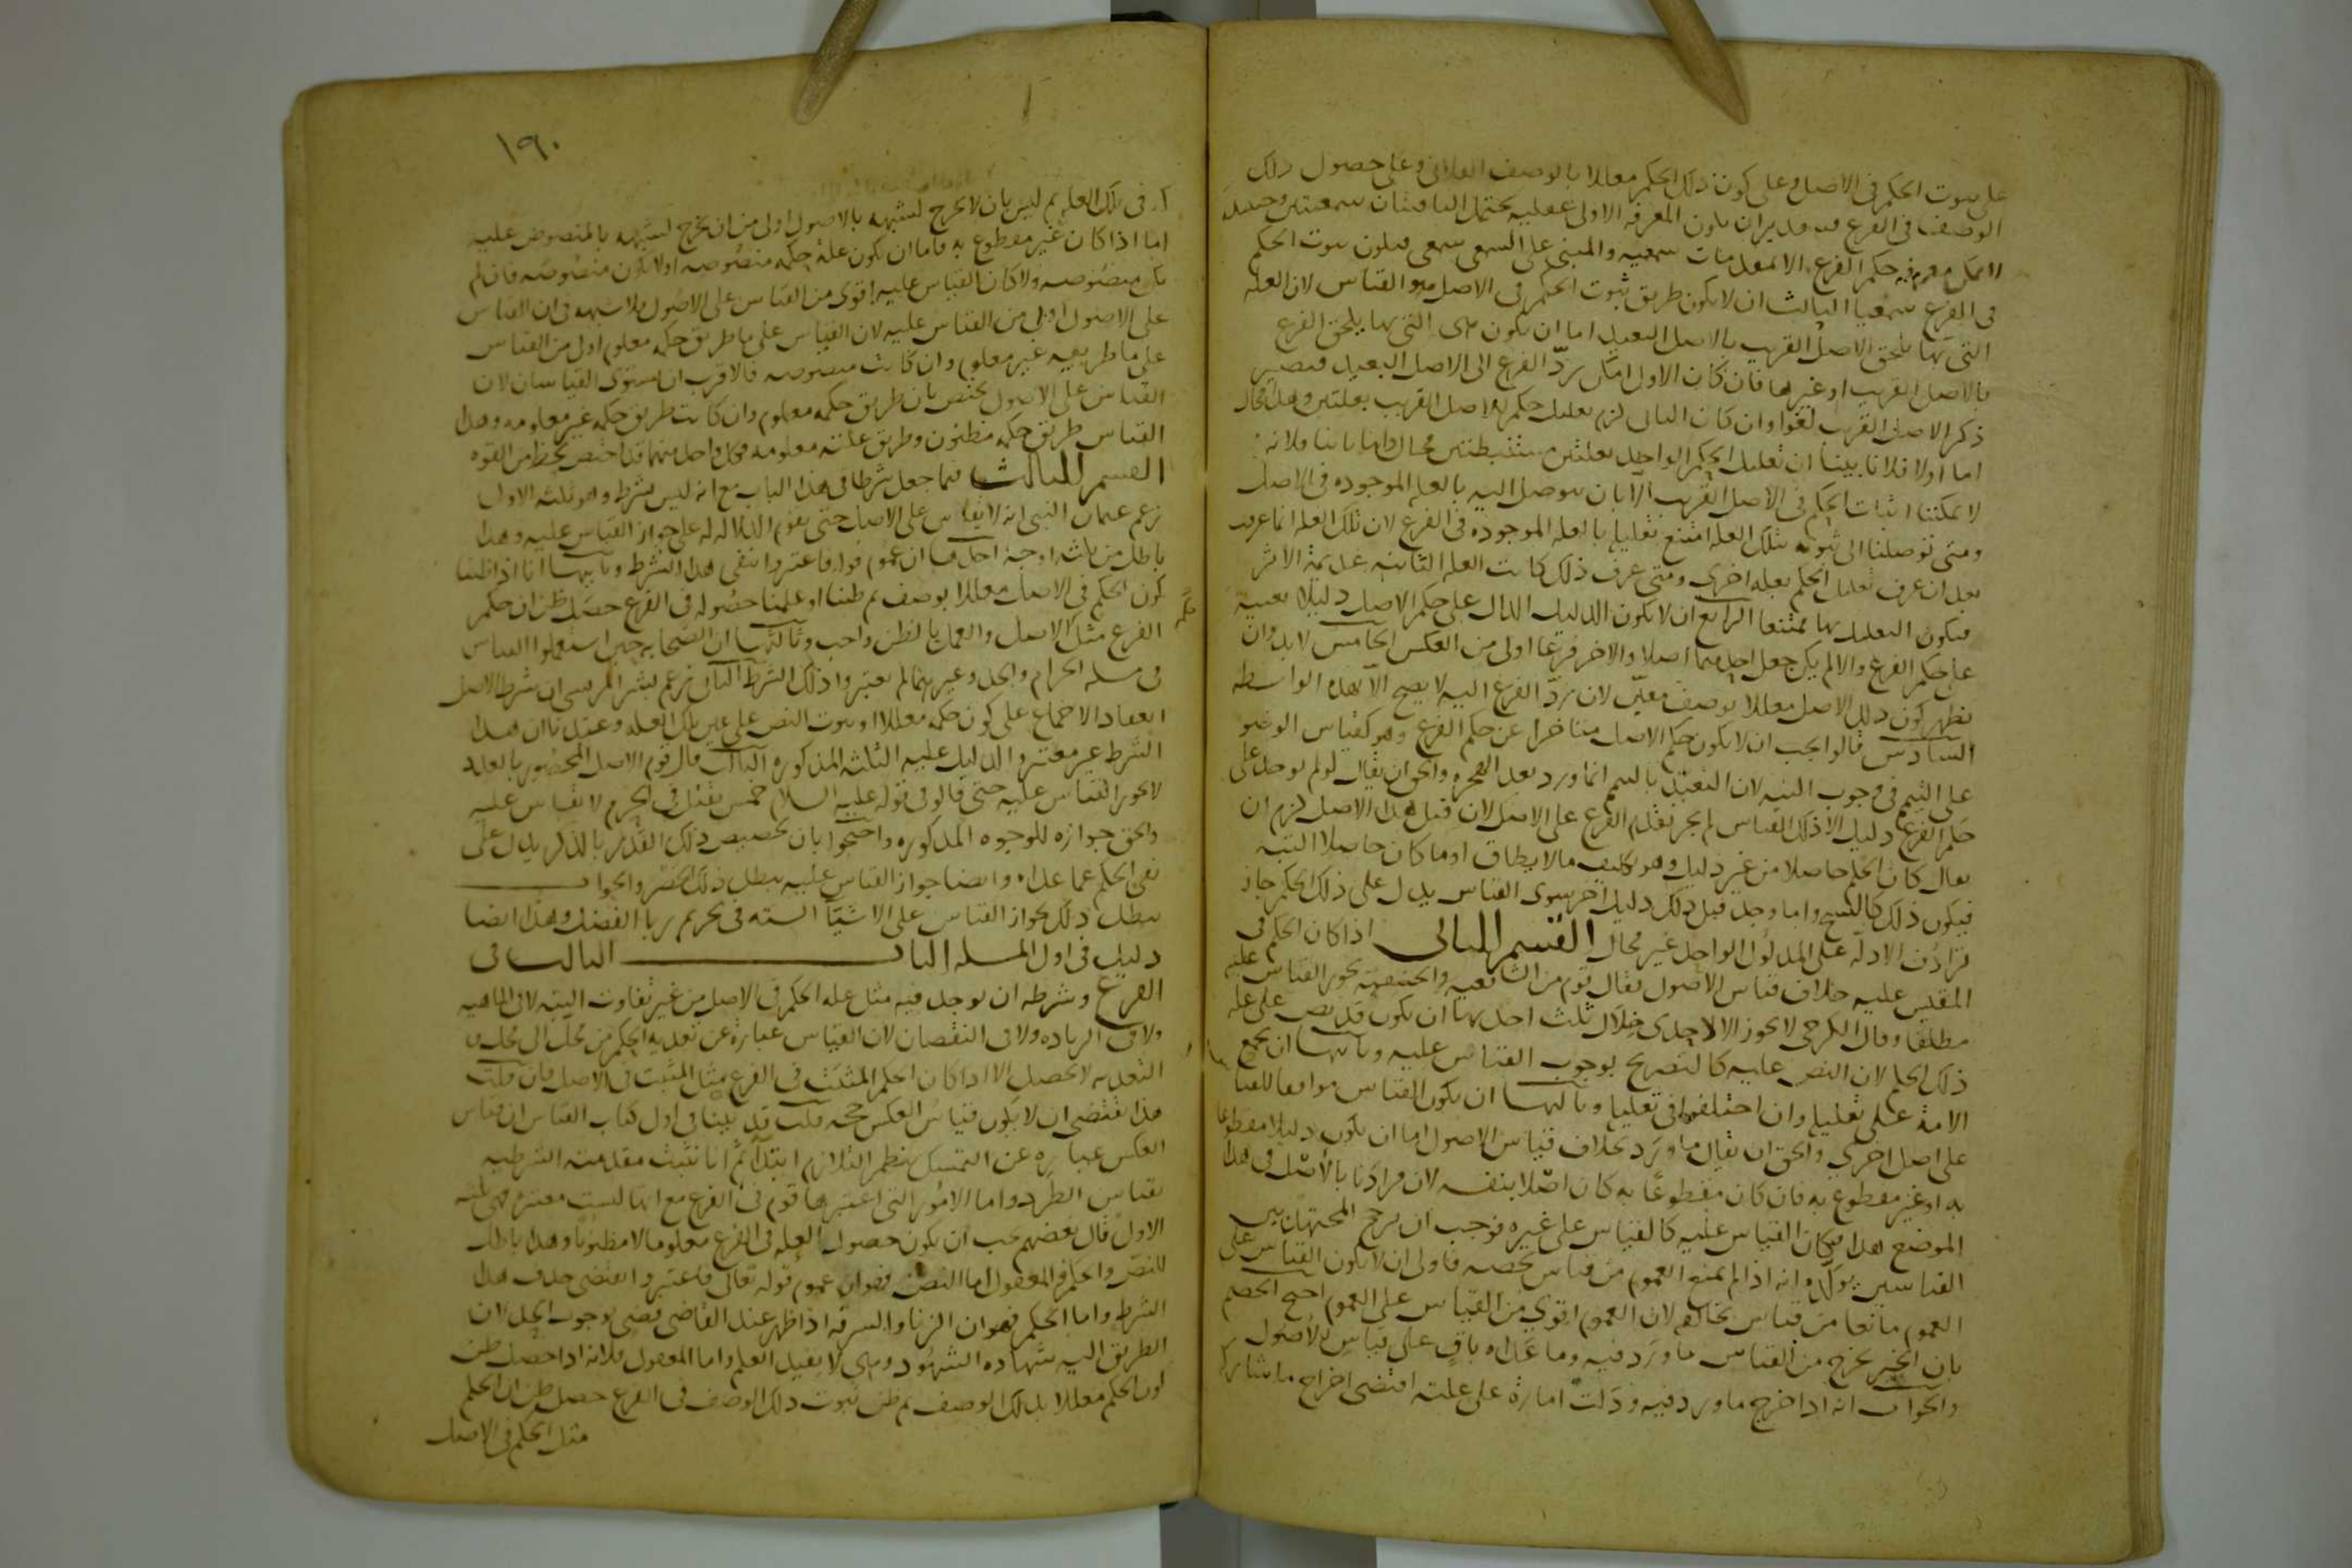 على ثبوت الحكم في الاصل وعلى كون ذلك الحكم معللا بالوصف الفلاني وعلى حصول ذلك
الوصف في الفرع فبتقدير ان يكون المعرفة الاولى عقلية يحتمل الباقيتان سمعيتين وحينئذ
لا يمكن معرفة حكم الفرع الا بمقدمات سمعيه والمبني على السمعي سمعي فيكون ثبوت الحكم
في الفرع سمعيا الثالث ان لا يكون طريق ثبوت الحكم في الاصل هو القياس لان العلة
التي بها يلحق الاصل القريب بالاصل البعيد اما ان يكون هي التي بها يلحق الفرع
بالاصل القريب او غيرها فان كان الاول امكن ردّ الفرع الى الاصل البعيد فيصير
ذكر الاصل القريب لغوا وان كان الثاني لزم تعليل حكم الاصل القريب بعلتين وهو محال
اما اولا فلانا بينا ان تعليل الحكم الواحد بعلتين مستنبطتين محال واما ثانيا فلانه
لا يمكننا اثبات الحكم في الاصل القريب الا بان نتوصل اليه بالعلة الموجوده في الاصل
ومتى توصلنا الى ثبوته بتلك العلة امتنع تعليله بالعلة الموجوده في الفرع لان تلك العلة انما عرفت
بعد ان عرف تعليل الحكم بعلة اخرى ومتى عرف ذلك كانت العلة الثانيه عديمة الاثر
فيكون التعليل بها ممتنعا الرابع ان لا يكون الدليل الدال على حكم الاصل دليلا بعينه
على حكم الفرع والا لم يكن جعل احدهما اصلا والاخر فرعا اولى من العكس الخامس لا بد وان
يظهر كون ذلك الاصل معللا بوصف معيّن لان ردّ الفرع اليه لا يصح الا بهذه الواسطه
السادس قالوا يجب ان لا يكون حكم الاصل متاخرا عن حكم الفرع وهو كقياس الوضو
على التيمم في وجوب النيه لان التعبد بالتيمم انما ورد بعد الهجره والحق ان يقال لو لم يوجد على
حكم الفرع دليل الا ذلك القياس لم يجز تقدم الفرع على الاصل لان قبل هذا الاصل لزم ان
يقال كان الحكم حاصلا من غير دليل وهو تكليف ما لا يطاق او ما كان حاصلا البته
فيكون ذلك كالنسخ واما وجد قبل ذلك دليل اخر سوى القياس يدل على ذلك الحكم جاز
ترادف الادلة على المدلول الواحد غير محال القسم الثاني اذا كان الحكم في
المقيس عليه خلاف قياس الاصول فقال قوم من الشافعيه والحنفيه يجوز القياس عليه
مطلقا وقال الكرخي لا يجوز الا لاحدى خلال ثلث احدها ان يكون قد نص على علة
ذلك الحكم لان النص عليه كالتصريح بوجوب القياس عليه وثانيها ان يجمع
الامة على تعليله وان اختلفوا في تعليله وثالثها ان يكون القياس موافقا للقياس
على اصل اخر والحق ان يقال ما ورد بخلاف قياس الاصول اما ان يكون دليلا مقطوعا
به او غير مقطوع به فان كان مقطوعا به كان اصلا بنفسه لان مرادنا بالاصل في هذا
الموضع هذا فكان القياس عليه كالقياس على غيره فوجب ان يرجح المجتهد بين
القياسين يوكده انه اذا لم يمنع العموم من قياس يخصه فاولى ان لا يكون القياس على
العموم مانعا من قياس يخالفه لان العموم اقوى من القياس على العموم احتج الخصم
بان الخبر يخرج من القياس ما ورد فيه وما عداه باق على قياس الاصول
والجواب انه اذا اخرج ما ورد فيه ودلت امارة على علته اقتضى اخراج ما شاركه
١٩٠
في تلك العلة ثم ليس بان لا يخرج لشبهه بالاصول اولى من ان يخرج لشبهه بالمنصوص عليه
اما اذا كان غير مقطوع به فاما ان يكون علة حكمه منصوصه او لا يكون منصوصه فان لم
يكن منصوصه ولا كان القياس عليه اقوى من القياس على الاصول فلا شبهه في ان القياس
على الاصول اولى من القياس عليه لان القياس على ما طريق حكمه معلوم اولى من القياس
على ما طريقه غير معلوم وان كانت منصوصه فالاقرب ان يستوى القياسان لان
القياس على الاصول يختص بان طريق حكمه معلوم وان كانت طريق حكمه غير معلومه وهذا
القياس طريق حكمه مظنون وطريق علته معلومه فكل واحد منهما قد اختص بحظ من القوه
القسم الثالث فيما جعل شرطا في هذا الباب مع انه ليس بشرط وهو ثلثه الاول
زعم عثمان البتي انه لا يقاس على الاصل حتى يقوم الدلاله على جواز القياس عليه وهذا
باطل من ثلثه اوجه احدها ان عموم قوله فاعتبروا ينفي هذا الشرط وثانيها انا اذا ظننا
كون الحكم في الاصل معللا بوصف ثم ظننا او علمنا حصوله في الفرع حصل ظن ان حكم
الفرع مثل الاصل والعمل بالظن واجب وثالثها ان الصحابه حين استعملوا القياس
في مسله الحرام والجد وغيرهما لم يعتبروا ذلك الشرط الثاني زعم بشر المريسي ان شرط الاصل
انعقاد الاجماع على كون حكمه معللا او ثبوت النص على عين تلك العلة وعندنا ان هذا
الشرط غير معتبر والدليل عليه الثلثه المذكوره الثالث قال قوم الاصل المحصور بالعدد
لا يجوز القياس عليه حتى قالوا في قوله عليه السلام خمس يقتلن في الحرم لا يقاس عليه
والحق جوازه للوجوه المذكوره واحتجوا بان تخصيص ذلك القدر بالذكر يدل على
نفي الحكم عما عداه وايضا جواز القياس عليه يبطل ذلك الحصر والجواب
يبطل ذلك بجواز القياس على الاشيا السته في تحريم ربا الفضل وهذا ايضا
دليل في اول المسله الباب الثالث في
الفرع وشرطه ان يوجد فيه مثل علة الحكم في الاصل من غير تفاوت البته لا في الماهيه
ولا في الزياده ولا في النقصان لان القياس عبارة عن تعديه الحكم من محل الى محل و
التعديه لا تحصل الا اذا كان الحكم المثبت في الفرع مثل المثبت في الاصل فان قلت
هذا يقتضي ان لا يكون قياس العكس حجه قلت قد بينا في اول كتاب القياس ان قياس
العكس عباره عن التمسك بنظم التلازم ابتدا ثم انا نثبت مقدمته الشرطيه
بقياس الطرد واما الامور التي اعتبرها قوم في الفرع مع انها ليست معتبره فهي ثلثه
الاول قال بعضهم يجب ان يكون حصول العلة في الفرع معلوما لا مظنونا وهذا باطل
للنص والحكم والمعقول اما النص فهو ان عموم قوله تعالى فاعتبروا يقتضي حذف هذا
الشرط واما الحكم فهو ان الزنا والسرقه اذا ظهر عند القاضي قضى بوجوب الحد لان
الطريق اليه شهاده الشهود وهي لا تفيد العلم واما المعقول فلانه اذا حصل ظن
كون الحكم معللا بذلك الوصف ثم ظن ثبوت ذلك الوصف في الفرع حصل ظن ان الحكم
مثل الحكم في الاصل